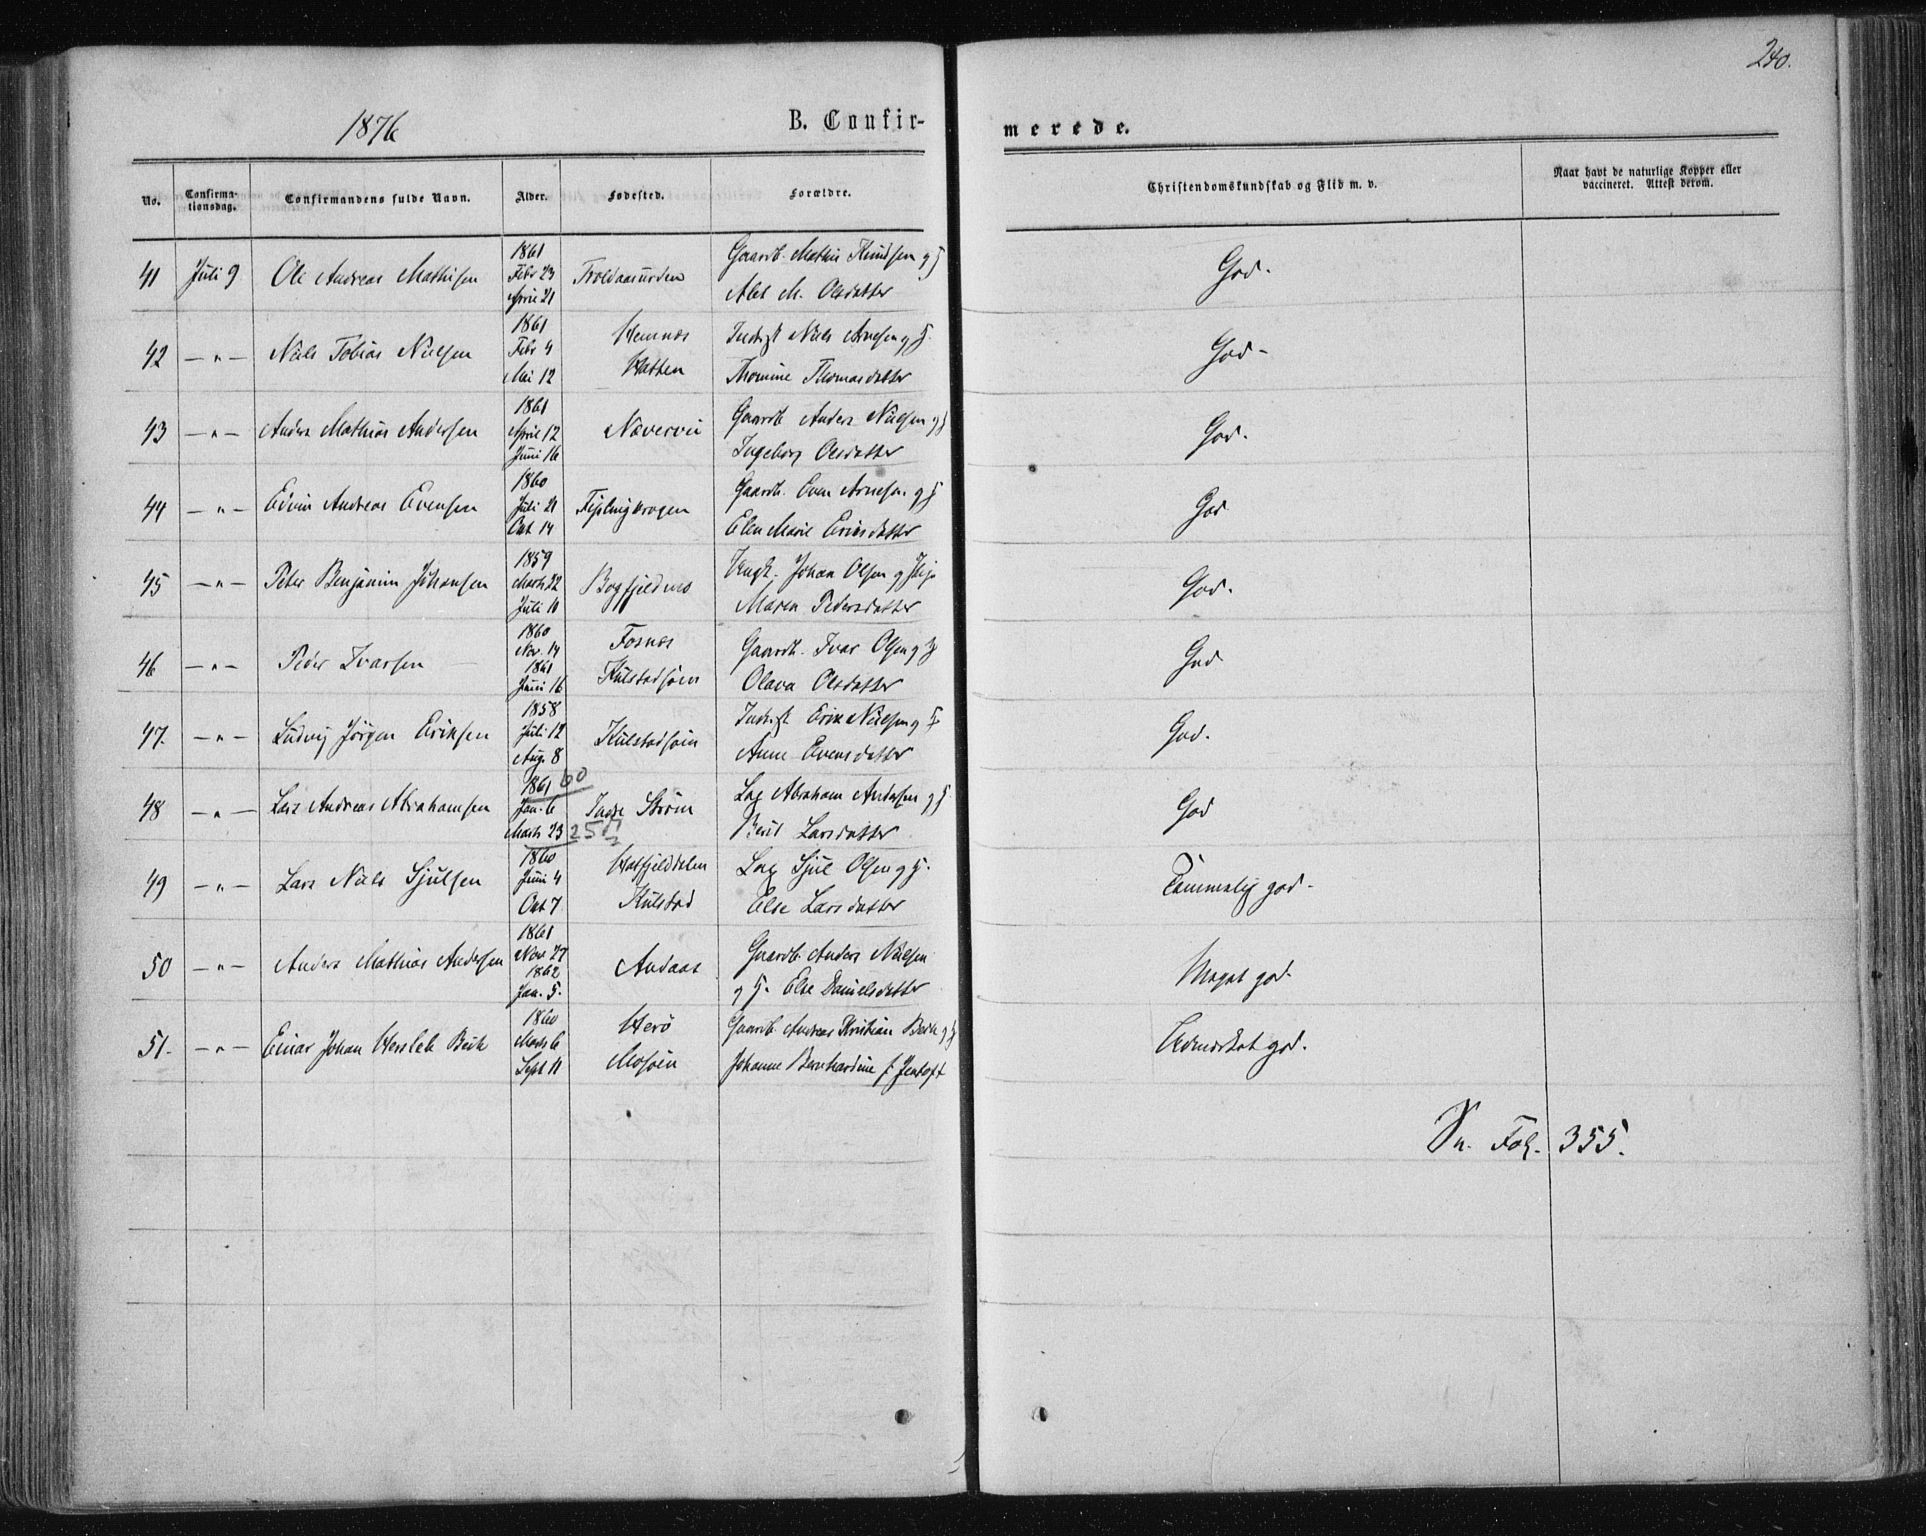 240.
1876
B. Confir-
merede.
No.
Confirma-
tionsdag.
Confirmandens fulde Navn.
Alder.
Fødested.
Forældre.
Christendomskundskab og Flid m. v.
Naar havt de naturlige Kopper eller
vaccineret. Attest derom.
41 Juli 9 Ole Andreas Mathisen 1861 Febr 23 April 21 Gaardb. Mathis Knudsen og H
Olsdatter God.
42 —"— Niels Tobias Nielsen 1861 Febr 4 Mai 12 Hemnes Hatten Indrgt Niels Arnesen og H.
Thomine Thomasdatter God-
43 —"— Anders Mathias Andersen 1861 April 12 Juni 16 Gaardb Anders Nielsen og H
Ingeborg Olsdatter God.
44 —"— Edvin Andreas Evensen 1860 Juli 21 Oct 14 Fiplingkrogen Gaardb. Even Arnesen og H
Elen Marie Eriksdatter God
45 —"— Peter Benjamin Johansen 1859 Marts 22 Juli 10 Bogfjeldmo Johan Olsen og
Maren Pedersdatter God.
46 —"— Peder Ivarsen 1860 Nov. 14 1861 Juni 16 Fosnes Kulstadsøien Gaardb. Ivar Olsen og H
Olava Olsdatter God
47. —"— Ludvig Jørgen Eriksen 1858 Juli 12 Aug. 8 Kulstadsøien Indrgt Erik Nielsen og H
Anne Evensdatter God.
48 —"— Lars Andreas Abrahamsen 1861 60 Jan. 6 Marts 23 25 Indre Strøm Lap Abraham Andersen og H
Berit Larsdatter God
49 —"— Lars Niels Sjulsen 1860 Juni 4 Oct 7 Hatfjelddalen Kulstad Lap Sjul Olsen og H.
Else Larsdatter Temmelig god-
50 —"— Anders Mathias Andersen 1861 Nov 27 1862 Jan. 5. Andaas Gaardb. Anders Nielsen
og H. Else Danielsdatter Meget god-
51. —"— Einar Johan Hersleb Bech 1860 Marts 6 Sept 11 Herø Mosøen Gaardb Andreas Kristian Bech og H
Johanne Bernhardine f. Jentoft Udmærket god.
Vn. Fol. 355.